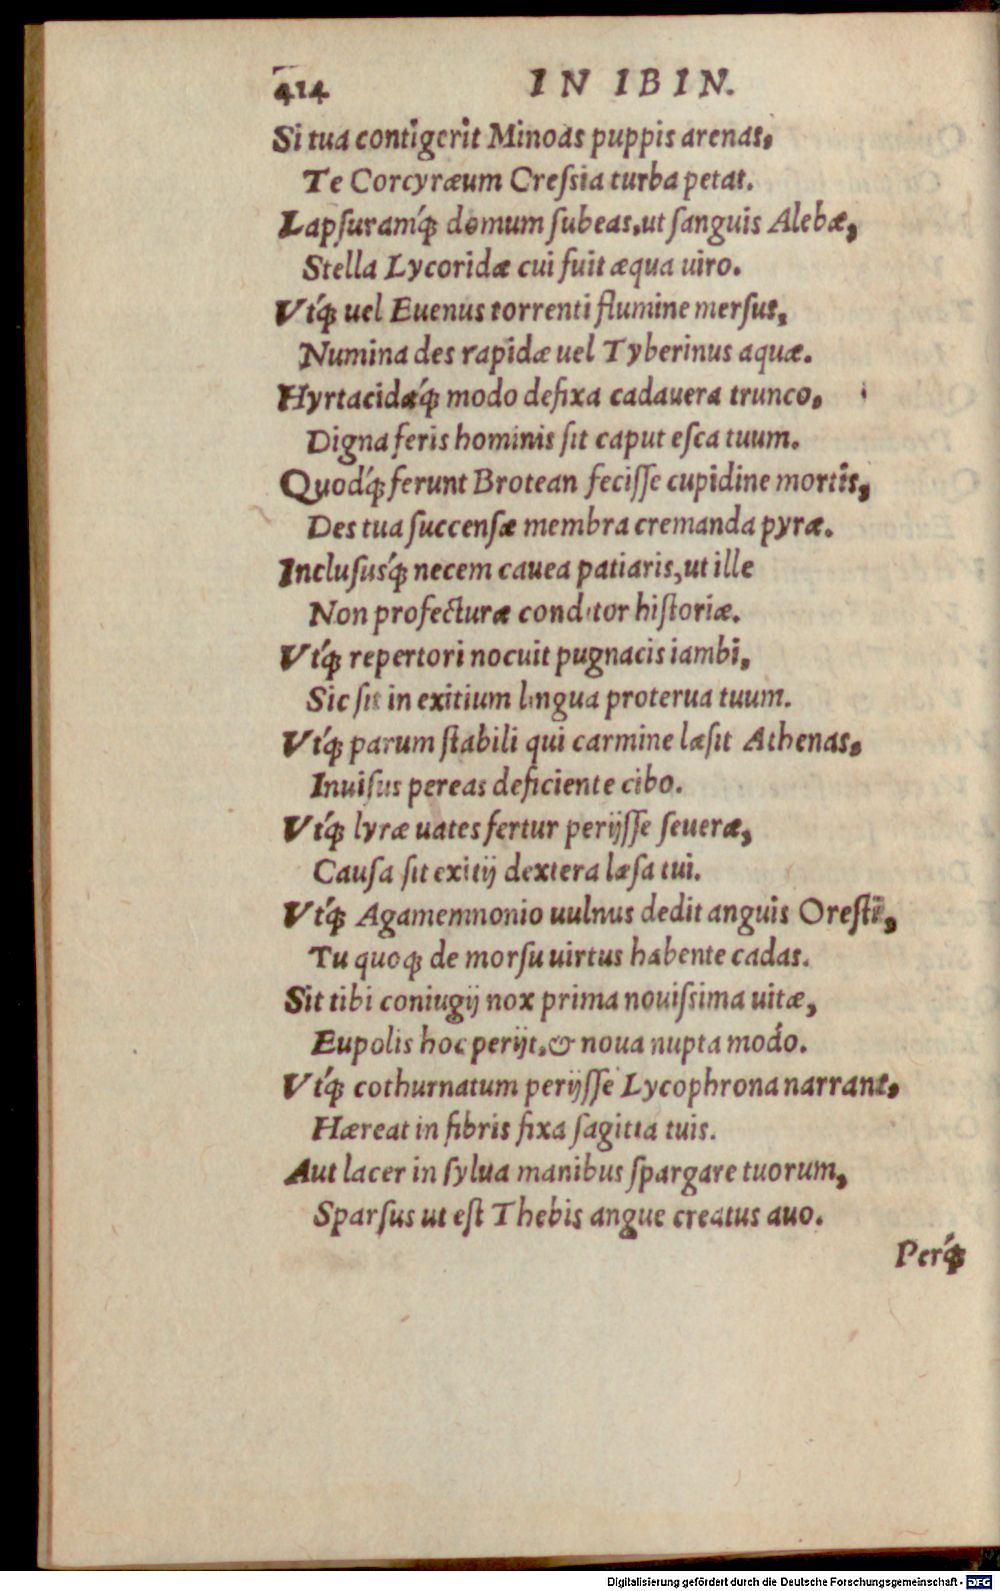 414 IN IBIN.
Si tua contigerit Minoas puppis arenas,
Te Corcyræum Creſsia turba petat.
Lapſuramq́; domum ſubeas, ut ſanguis Alebæ,
Stella Lycoridæ cui fuit æqua uiro.
Vtq́; uel Euenus torrenti flumine merſus,
Numina des rapidæ uel Tyberinus aquæ.
Hyrtacidæq́; modo defixa cadauera trunco,
Digna feris hominis ſit caput eſca tuum.
Quodq́; ferunt Brotean feciſſe cupidine mortis,
Des tua ſuccenſæ membra cremanda pyræ.
Incluſusq́; necem cauea patiaris, ut ille
Non profecturæ conditor hiſtoriæ.
Vtq́; repertori nocuit pugnacis iambi,
Sic ſit in exitium lingua proterua tuum.
Vtq́; parum ſtabili qui carmine læſit Athenas,
Inuiſus pereas deficiente cibo.
Vtq́; lyræ uates fertur perijſſe ſeueræ,
Cauſa ſit exitij dextera læſa tui.
Vtq́; Agamemnonio uulnus dedit anguis Oreſti,
Tu quoq; de morſu uirtus habente cadas.
Sit tibi coniugij nox prima nouiſsima uitæ,
Eupolis hoc perijt, & noua nupta modo.
Vtq́; cothurnatum perijſſe Lycophrona narrant,
Hæreat in fibris fixa ſagitta tuis.
Aut lacer in ſylua manibus ſpargare tuorum,
Sparſus ut eſt Thebis angue creatus auo.
Perq́;
Digitalisierung gefördert durch die Deutsche Forschungsgemeinschaft - DFG